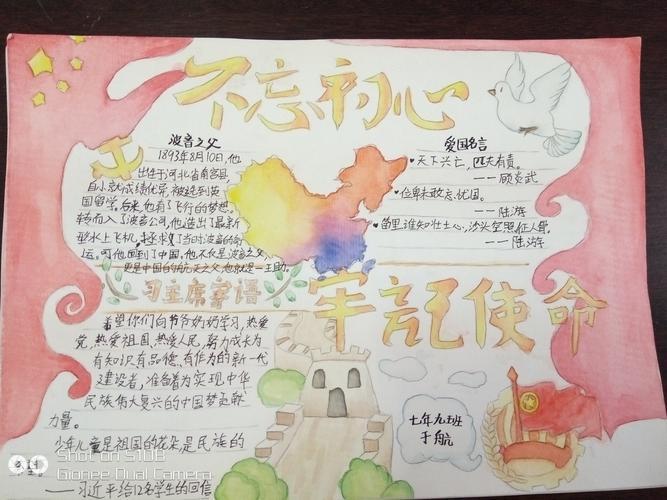 不忘初心
波音之父
1893年8月10日,他
出生于河北省南宫县
自小就成绩优异,被选到英
国留学。后来,他有了飞行的梦想。
转而入了波音公司,他造出了最新
型水上飞机,拯救了当时波音的命
运。可他回到了中国。他不仅是波音之父,
更是中国的航天之父,他就是一王助。
爱国名言
天下兴亡,匹夫有责。
——顾炎武
位卑未敢忘忧国。
——陆游
笛里谁知壮士心,沙头空照征人骨。
——陆游
习主席寄语
希望你们向爷爷奶奶学习,热爱
党,热爱祖国,热爱人民,努力成长为
有知识、有品德、有作为的新一代
建设者,准备着为实现中华
民族伟大复兴的中国梦贡献
力量。
少年儿童是祖国的花朵,是民族的
——习近平给12名学生的回信
牢記使命
七年九班
于航
Shot on S10B
Gionee Dual Camera